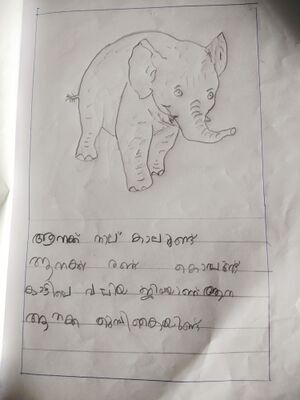 ആനക്ക് നാല് കാലുണ്ട്
ആനക്ക് രണ്ട് കൊമ്പുണ്ട്
കാട്ടിലെ വലിയ ജീവിയാണ് ആന
ആനക്ക് തുമ്പിക്കൈയുണ്ട്